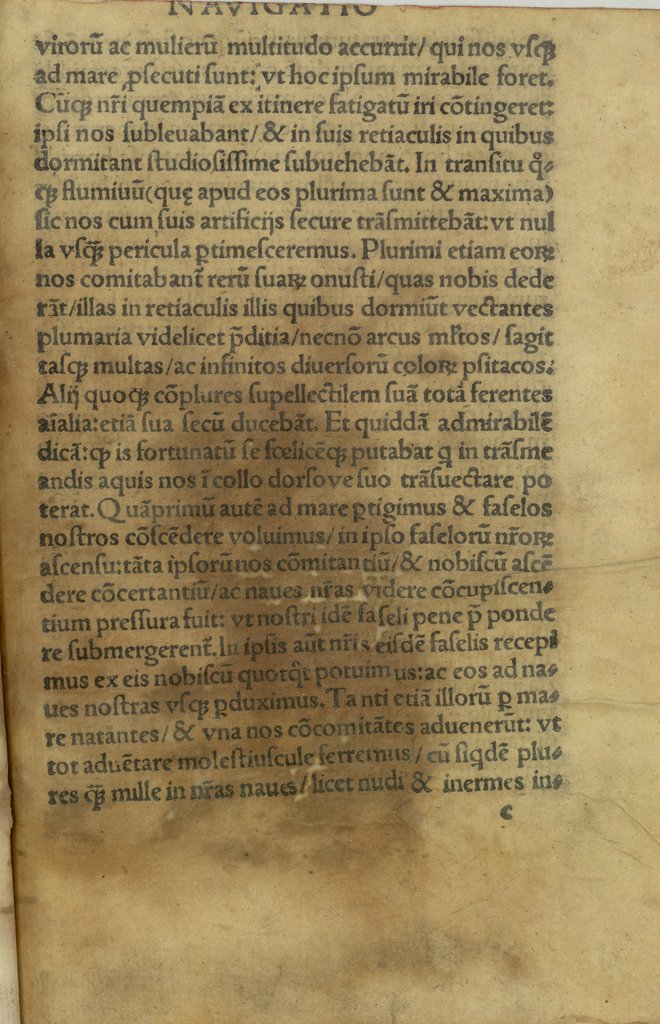 NAVIGATIO
virorū ac mulierū multitudo accurrit/ qui nos vſqꝫ
ad mare ꝓſecuti ſunt: vt hoc ipſum mirabile foret.
Cūqꝫ nr̄i quempiā ex itinere fatigatū iri cōtingeret:
ipſi nos ſubleuabant/ & in ſuis retiaculis in quibus
dormitant ſtudioſiſſime ſubuehebāt. In tranſitu q̄⸗
qꝫ flumiuū(quę apud eos plurima ſunt & maxima)
ſic nos cum ſuis artificijs ſecure trāſmittebāt: vt nul
la vſqꝫ̄ pericula ꝑtimeſceremus. Plurimi etiam eoꝝ
nos comitabant̄ rerū ſuaꝝ onuſti/quas nobis dede
rāt/illas in retiaculis illis quibus dormiūt vectantes
plumaria videlicet p̄ditia/necnō arcus ml̄tos/ ſagit
taſqꝫ multas/ac infinitos diuerſorū coloꝝ pſitacos.
Alij quoqꝫ cōplures ſupellectilem ſuā totā ferentes
aīalia:etiā ſua ſecū ducebāt. Et quiddā admirabile
dicā: ꝙ is fortunatū ſe fœlicēqꝫ putabat q̄ in trāſme
andis aquis nos ī collo dorſo ve ſuo trāſuectare po
terat. Quāprimū autē ad mare ꝑtigimus & faſelos
noſtros cōſcēdere voluimus/ in ipſo faſelorū nr̄oꝝ
aſcenſu:tāta ipſorū nos cōmitantiū/& nobiſcū aſcē
dere cōcertantiū/ac naues nr̄as videre cōcupiſcen⸗
tium preſſura fuit: vt noſtri idē faſeli pene p̄ ponde
re ſubmergerent̄. In ipſis aūt nr̄is eiſdē faſelis recepi
mus ex eis nobiſcū quotqt̄ potuimus:ac eos ad na⸗
ues noſtras vſqꝫ ꝑduximus. Tanti etiā illorū ꝑ ma⸗
re natantes/ & vna nos cōcomitātes aduenerūt: vt
tot aduētare moleſtiuſcule ferremus/ cū ſiqdē plu⸗
res qꝫ̄ mille in nr̄as naues/ licet nudi & inermes in⸗
c